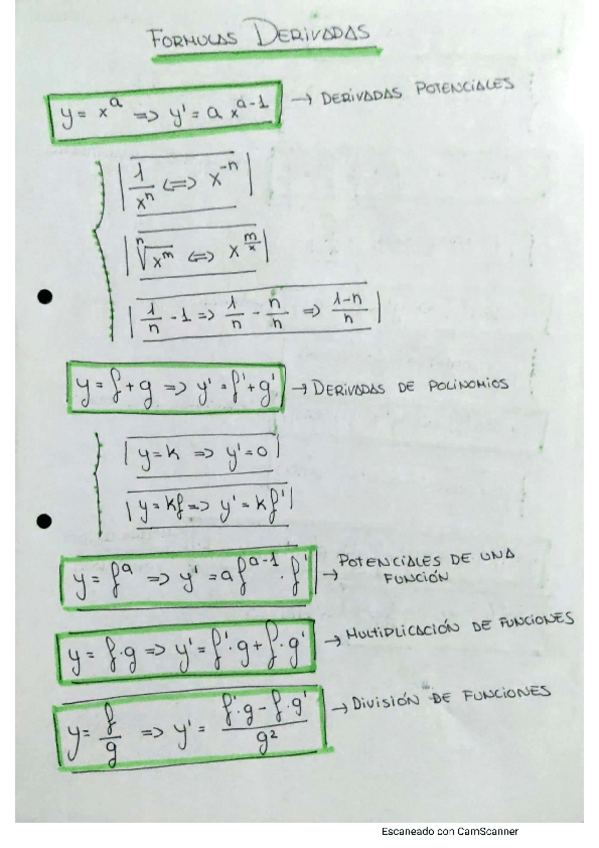 FORMULAS DERIVADAS
y = x^a => y' = a x^{a-1} → DERIVADAS POTENCIALES
1/x^n <=> x^{-n}
ⁿ√x^m <=> x^{m/x}
1/n - 1 => 1/n - n/n => 1-n/n
y = f + g => y' = f' + g' → DERIVADAS DE POLINOMIOS
y = k => y' = 0
y = kf => y' = k f'
y = f^a => y' = a f^{a-1} · f' → POTENCIALES DE UNA
FUNCIÓN
y = f · g => y' = f' · g + f · g' → MULTIPLICACIÓN DE FUNCIONES
y = f/g => y' = f' · g - f · g' / g² → DIVISIÓN DE FUNCIONES
Escaneado con CamScanner